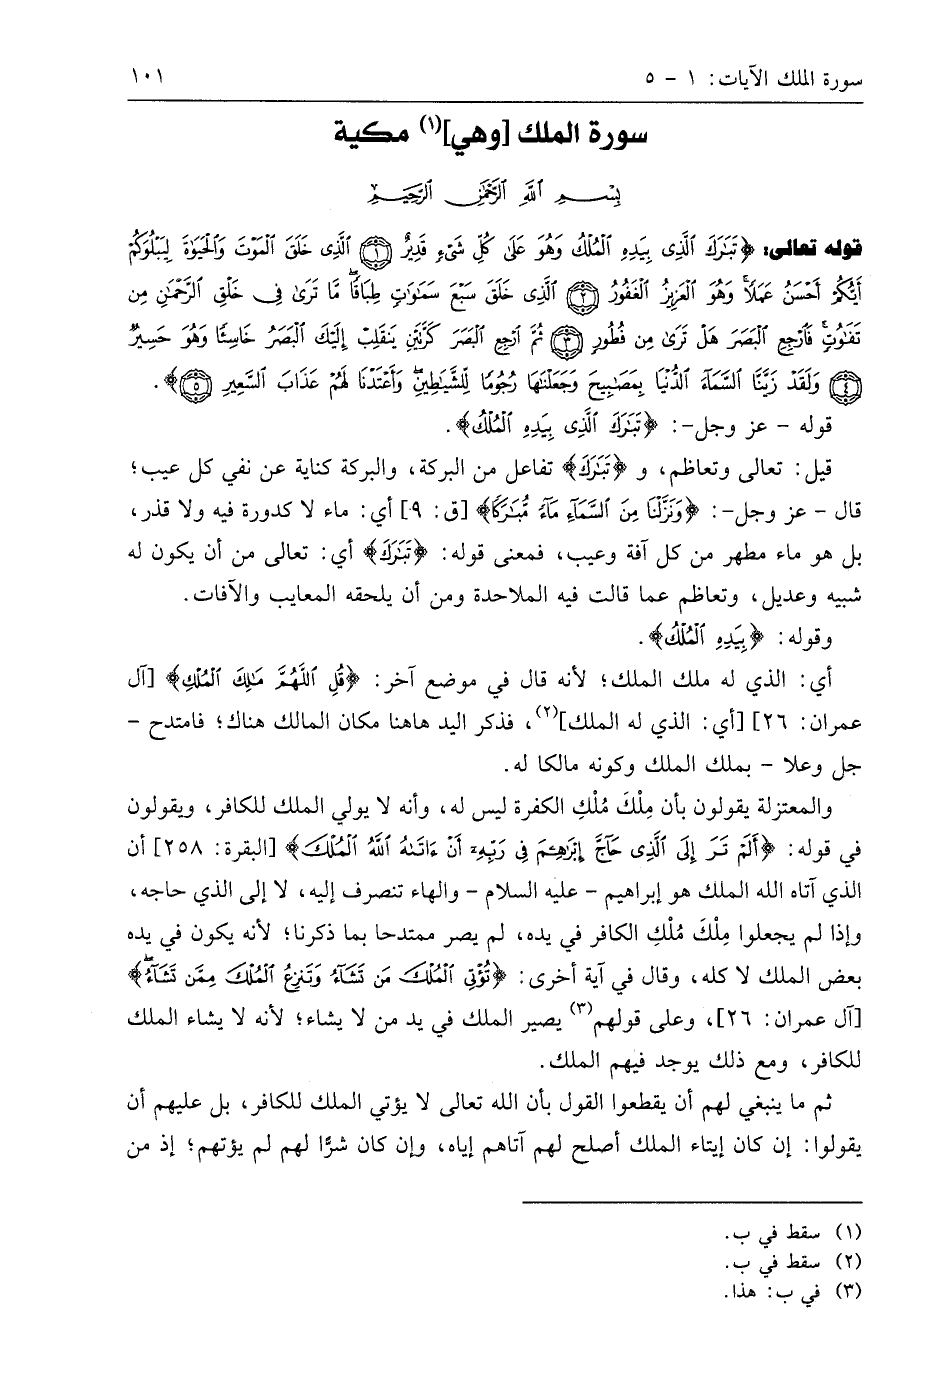 سورة الملك الآيات: ١ - ٥ ١٠١
سورة الملك [وهي](١) مكية
بِسْمِ اللَّهِ الرَّحْمَٰنِ الرَّحِيمِ
قوله تعالى: ﴿تَبَٰرَكَ ٱلَّذِى بِيَدِهِ ٱلْمُلْكُ وَهُوَ عَلَىٰ كُلِّ شَىْءٍ قَدِيرٌ ﴿١﴾ ٱلَّذِى خَلَقَ ٱلْمَوْتَ وَٱلْحَيَوٰةَ لِيَبْلُوَكُمْ
أَيُّكُمْ أَحْسَنُ عَمَلًا ۚ وَهُوَ ٱلْعَزِيزُ ٱلْغَفُورُ ﴿٢﴾ ٱلَّذِى خَلَقَ سَبْعَ سَمَٰوَٰتٍ طِبَاقًا ۖ مَّا تَرَىٰ فِى خَلْقِ ٱلرَّحْمَٰنِ مِن
تَفَٰوُتٍ ۖ فَٱرْجِعِ ٱلْبَصَرَ هَلْ تَرَىٰ مِن فُطُورٍ ﴿٣﴾ ثُمَّ ٱرْجِعِ ٱلْبَصَرَ كَرَّتَيْنِ يَنقَلِبْ إِلَيْكَ ٱلْبَصَرُ خَاسِئًا وَهُوَ حَسِيرٌ
﴿٤﴾ وَلَقَدْ زَيَّنَّا ٱلسَّمَآءَ ٱلدُّنْيَا بِمَصَٰبِيحَ وَجَعَلْنَٰهَا رُجُومًا لِّلشَّيَٰطِينِ ۖ وَأَعْتَدْنَا لَهُمْ عَذَابَ ٱلسَّعِيرِ ﴿٥﴾﴾.
قوله - عز وجل-: ﴿تَبَٰرَكَ ٱلَّذِى بِيَدِهِ ٱلْمُلْكُ﴾.
قيل: تعالى وتعاظم، و ﴿تَبَٰرَكَ﴾ تفاعل من البركة، والبركة كناية عن نفي كل عيب؛
قال - عز وجل-: ﴿وَنَزَّلْنَا مِنَ ٱلسَّمَآءِ مَآءً مُّبَٰرَكًا﴾ [ق: ٩] أي: ماء لا كدورة فيه ولا قذر،
بل هو ماء مطهر من كل آفة وعيب، فمعنى قوله: ﴿تَبَٰرَكَ﴾ أي: تعالى من أن يكون له
شبيه وعديل، وتعاظم عما قالت فيه الملاحدة ومن أن يلحقه المعايب والآفات.
وقوله: ﴿بِيَدِهِ ٱلْمُلْكُ﴾.
أي: الذي له ملك الملك؛ لأنه قال في موضع آخر: ﴿قُلِ ٱللَّهُمَّ مَٰلِكَ ٱلْمُلْكِ﴾ [آل
عمران: ٢٦] [أي: الذي له الملك](٢)، فذكر اليد هاهنا مكان المالك هناك؛ فامتدح -
جل وعلا - بملك الملك وكونه مالكا له.
والمعتزلة يقولون بأن مِلْكَ مُلْكِ الكفرة ليس له، وأنه لا يولي الملك للكافر، ويقولون
في قوله: ﴿أَلَمْ تَرَ إِلَى ٱلَّذِى حَآجَّ إِبْرَٰهِـۧمَ فِى رَبِّهِۦٓ أَنْ ءَاتَىٰهُ ٱللَّهُ ٱلْمُلْكَ﴾ [البقرة: ٢٥٨] أن
الذي آتاه الله الملك هو إبراهيم - عليه السلام - والهاء تنصرف إليه، لا إلى الذي حاجه،
وإذا لم يجعلوا مِلْكَ مُلْكِ الكافر في يده، لم يصر ممتدحا بما ذكرنا؛ لأنه يكون في يده
بعض الملك لا كله، وقال في آية أخرى: ﴿تُؤْتِى ٱلْمُلْكَ مَن تَشَآءُ وَتَنزِعُ ٱلْمُلْكَ مِمَّن تَشَآءُ ۖ﴾
[آل عمران: ٢٦]، وعلى قولهم(٣) يصير الملك في يد من لا يشاء؛ لأنه لا يشاء الملك
للكافر، ومع ذلك يوجد فيهم الملك.
ثم ما ينبغي لهم أن يقطعوا القول بأن الله تعالى لا يؤتي الملك للكافر، بل عليهم أن
يقولوا: إن كان إيتاء الملك أصلح لهم آتاهم إياه، وإن كان شرًّا لهم لم يؤتهم؛ إذ من
(١) سقط في ب.
(٢) سقط في ب.
(٣) في ب: هذا.